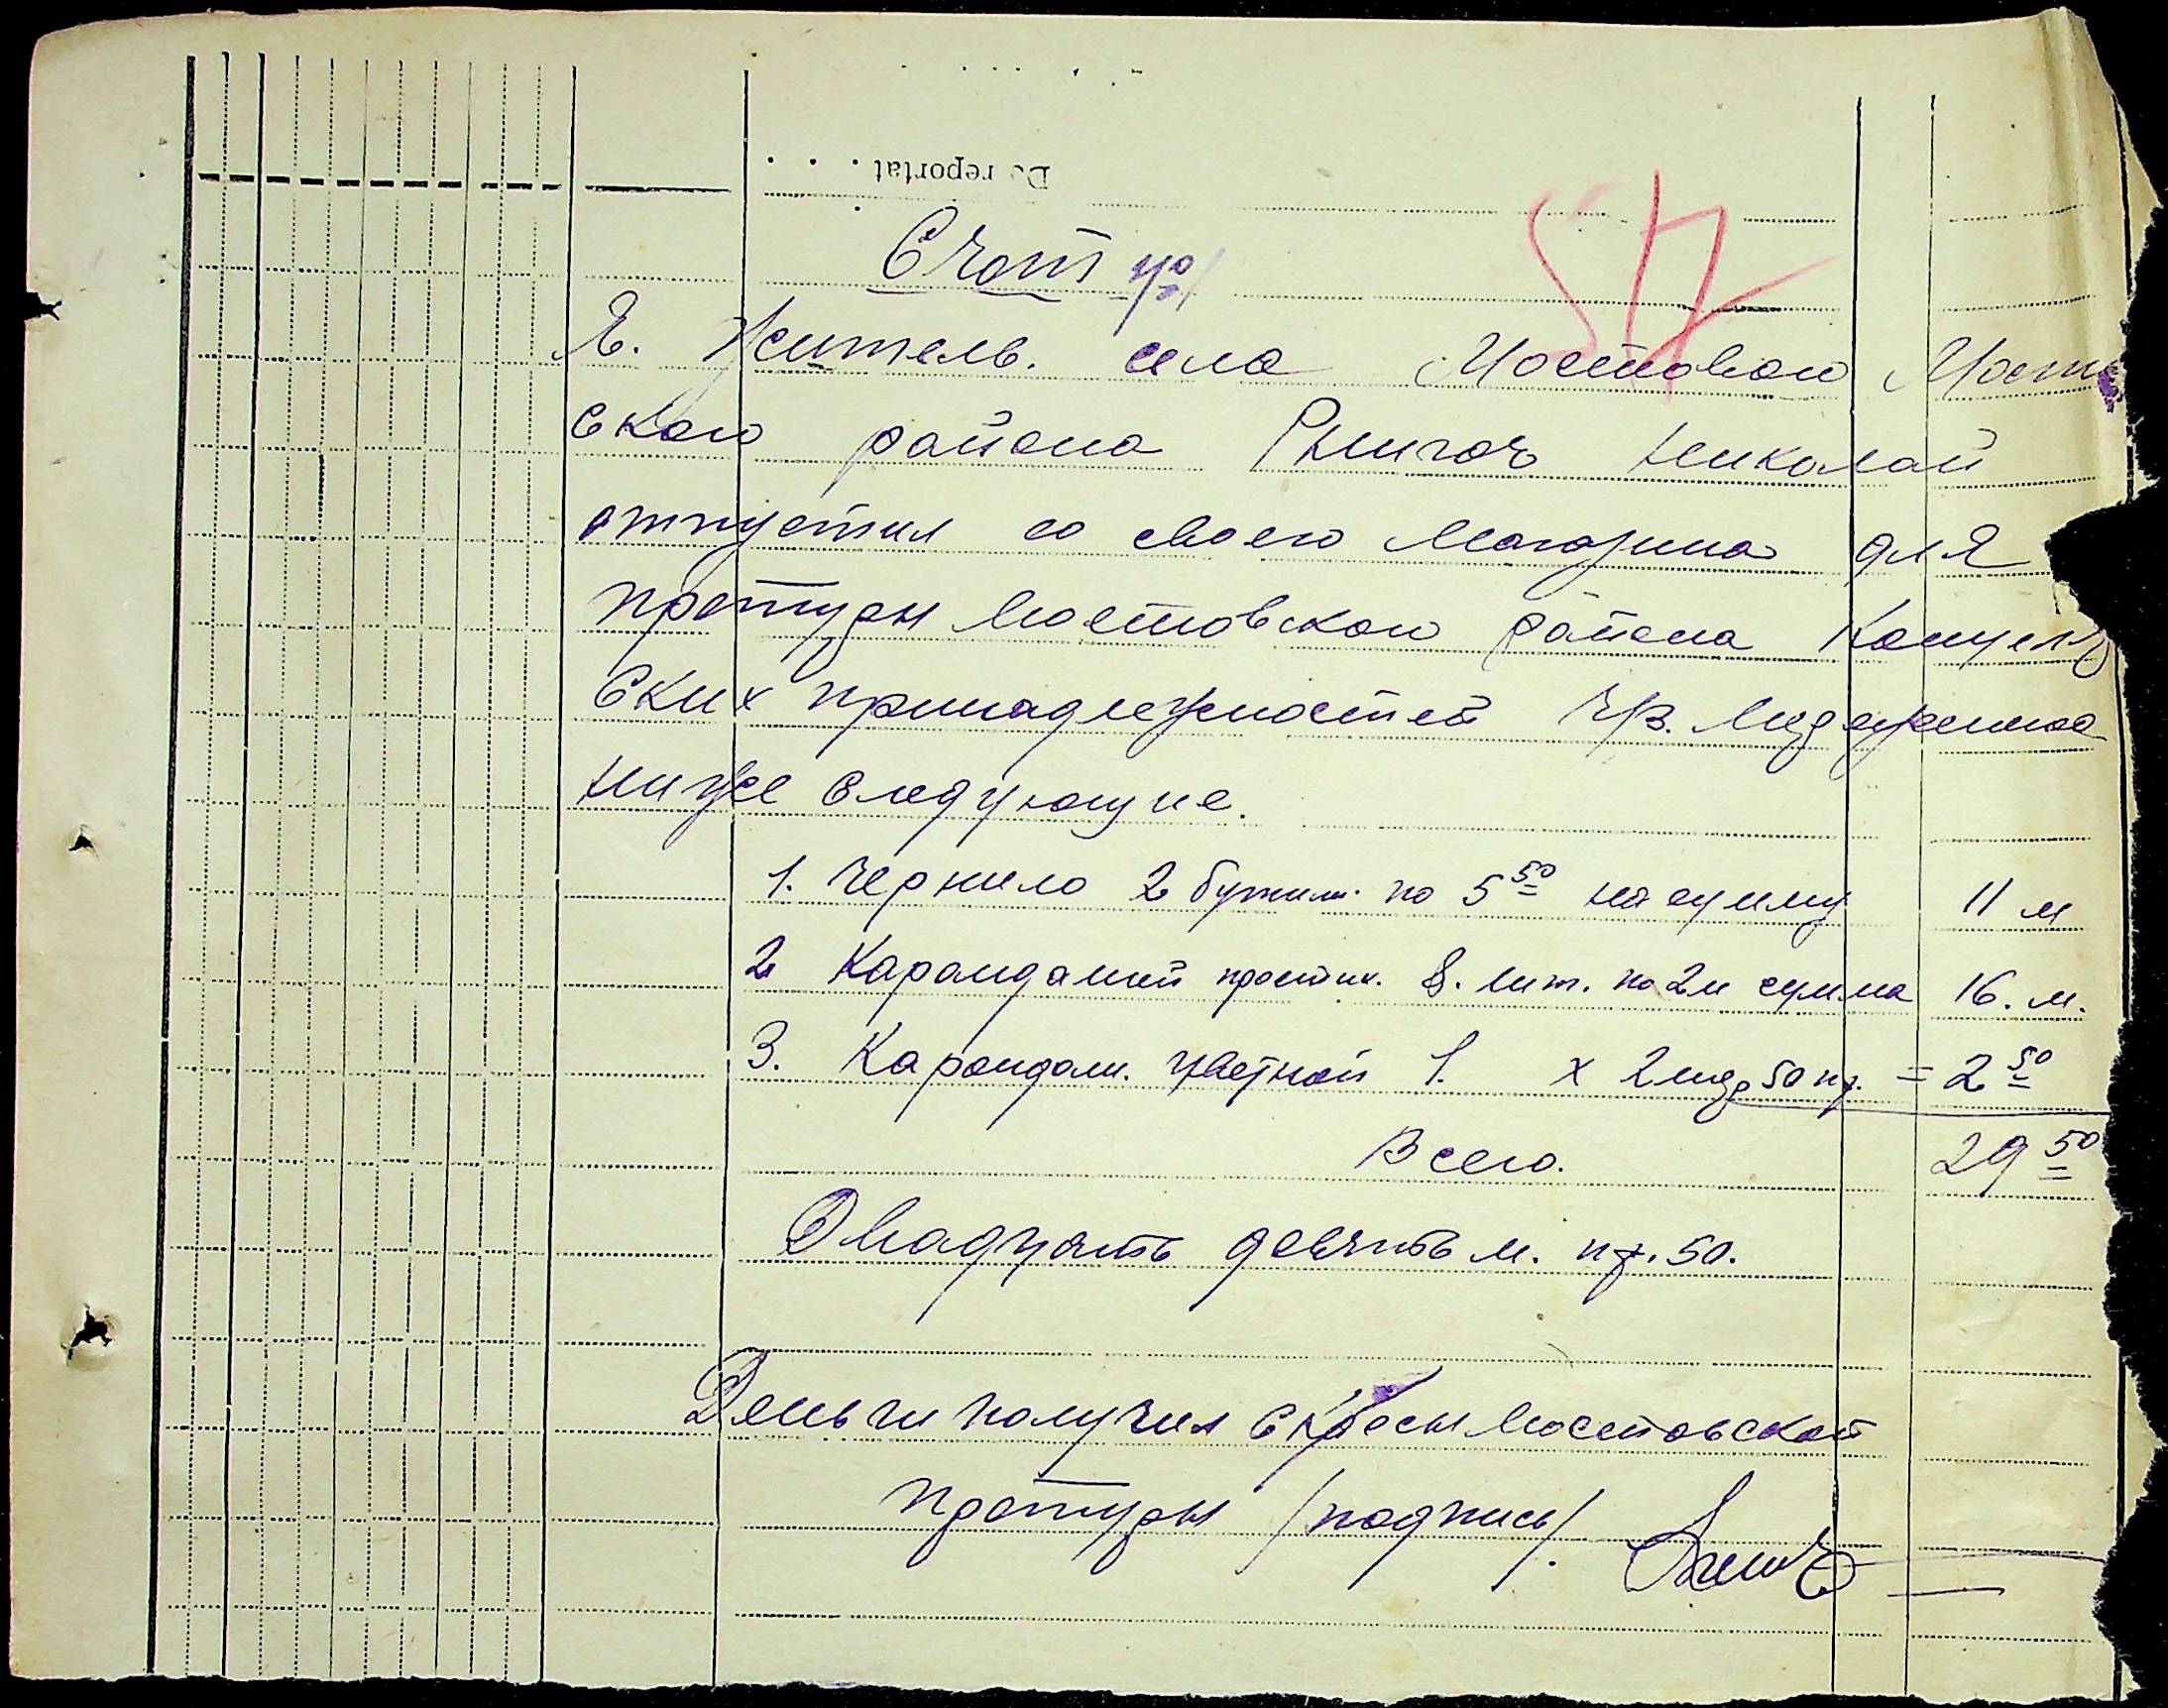 De reportat . . .
57
Счот №
Я. житель. села Мостовою Мост
ского района Николай
отпустил со своего магазина для
претуры Мостовского района Канцеля
ских принадлежностей
ниже следующие.
1. Чернило 2 бутыли. по 5 50 на сумму 11 м
2 Карандашей простых. 8. шт. по 2 м сумма 16. м.
3. Карандаш. цветной 1. х 2 м 50 пф. = 2 50
Всего. 29 50
Двадцать девять м. пф. 50.
Деньги получил с касы Мостовской
претуры /подпись/.